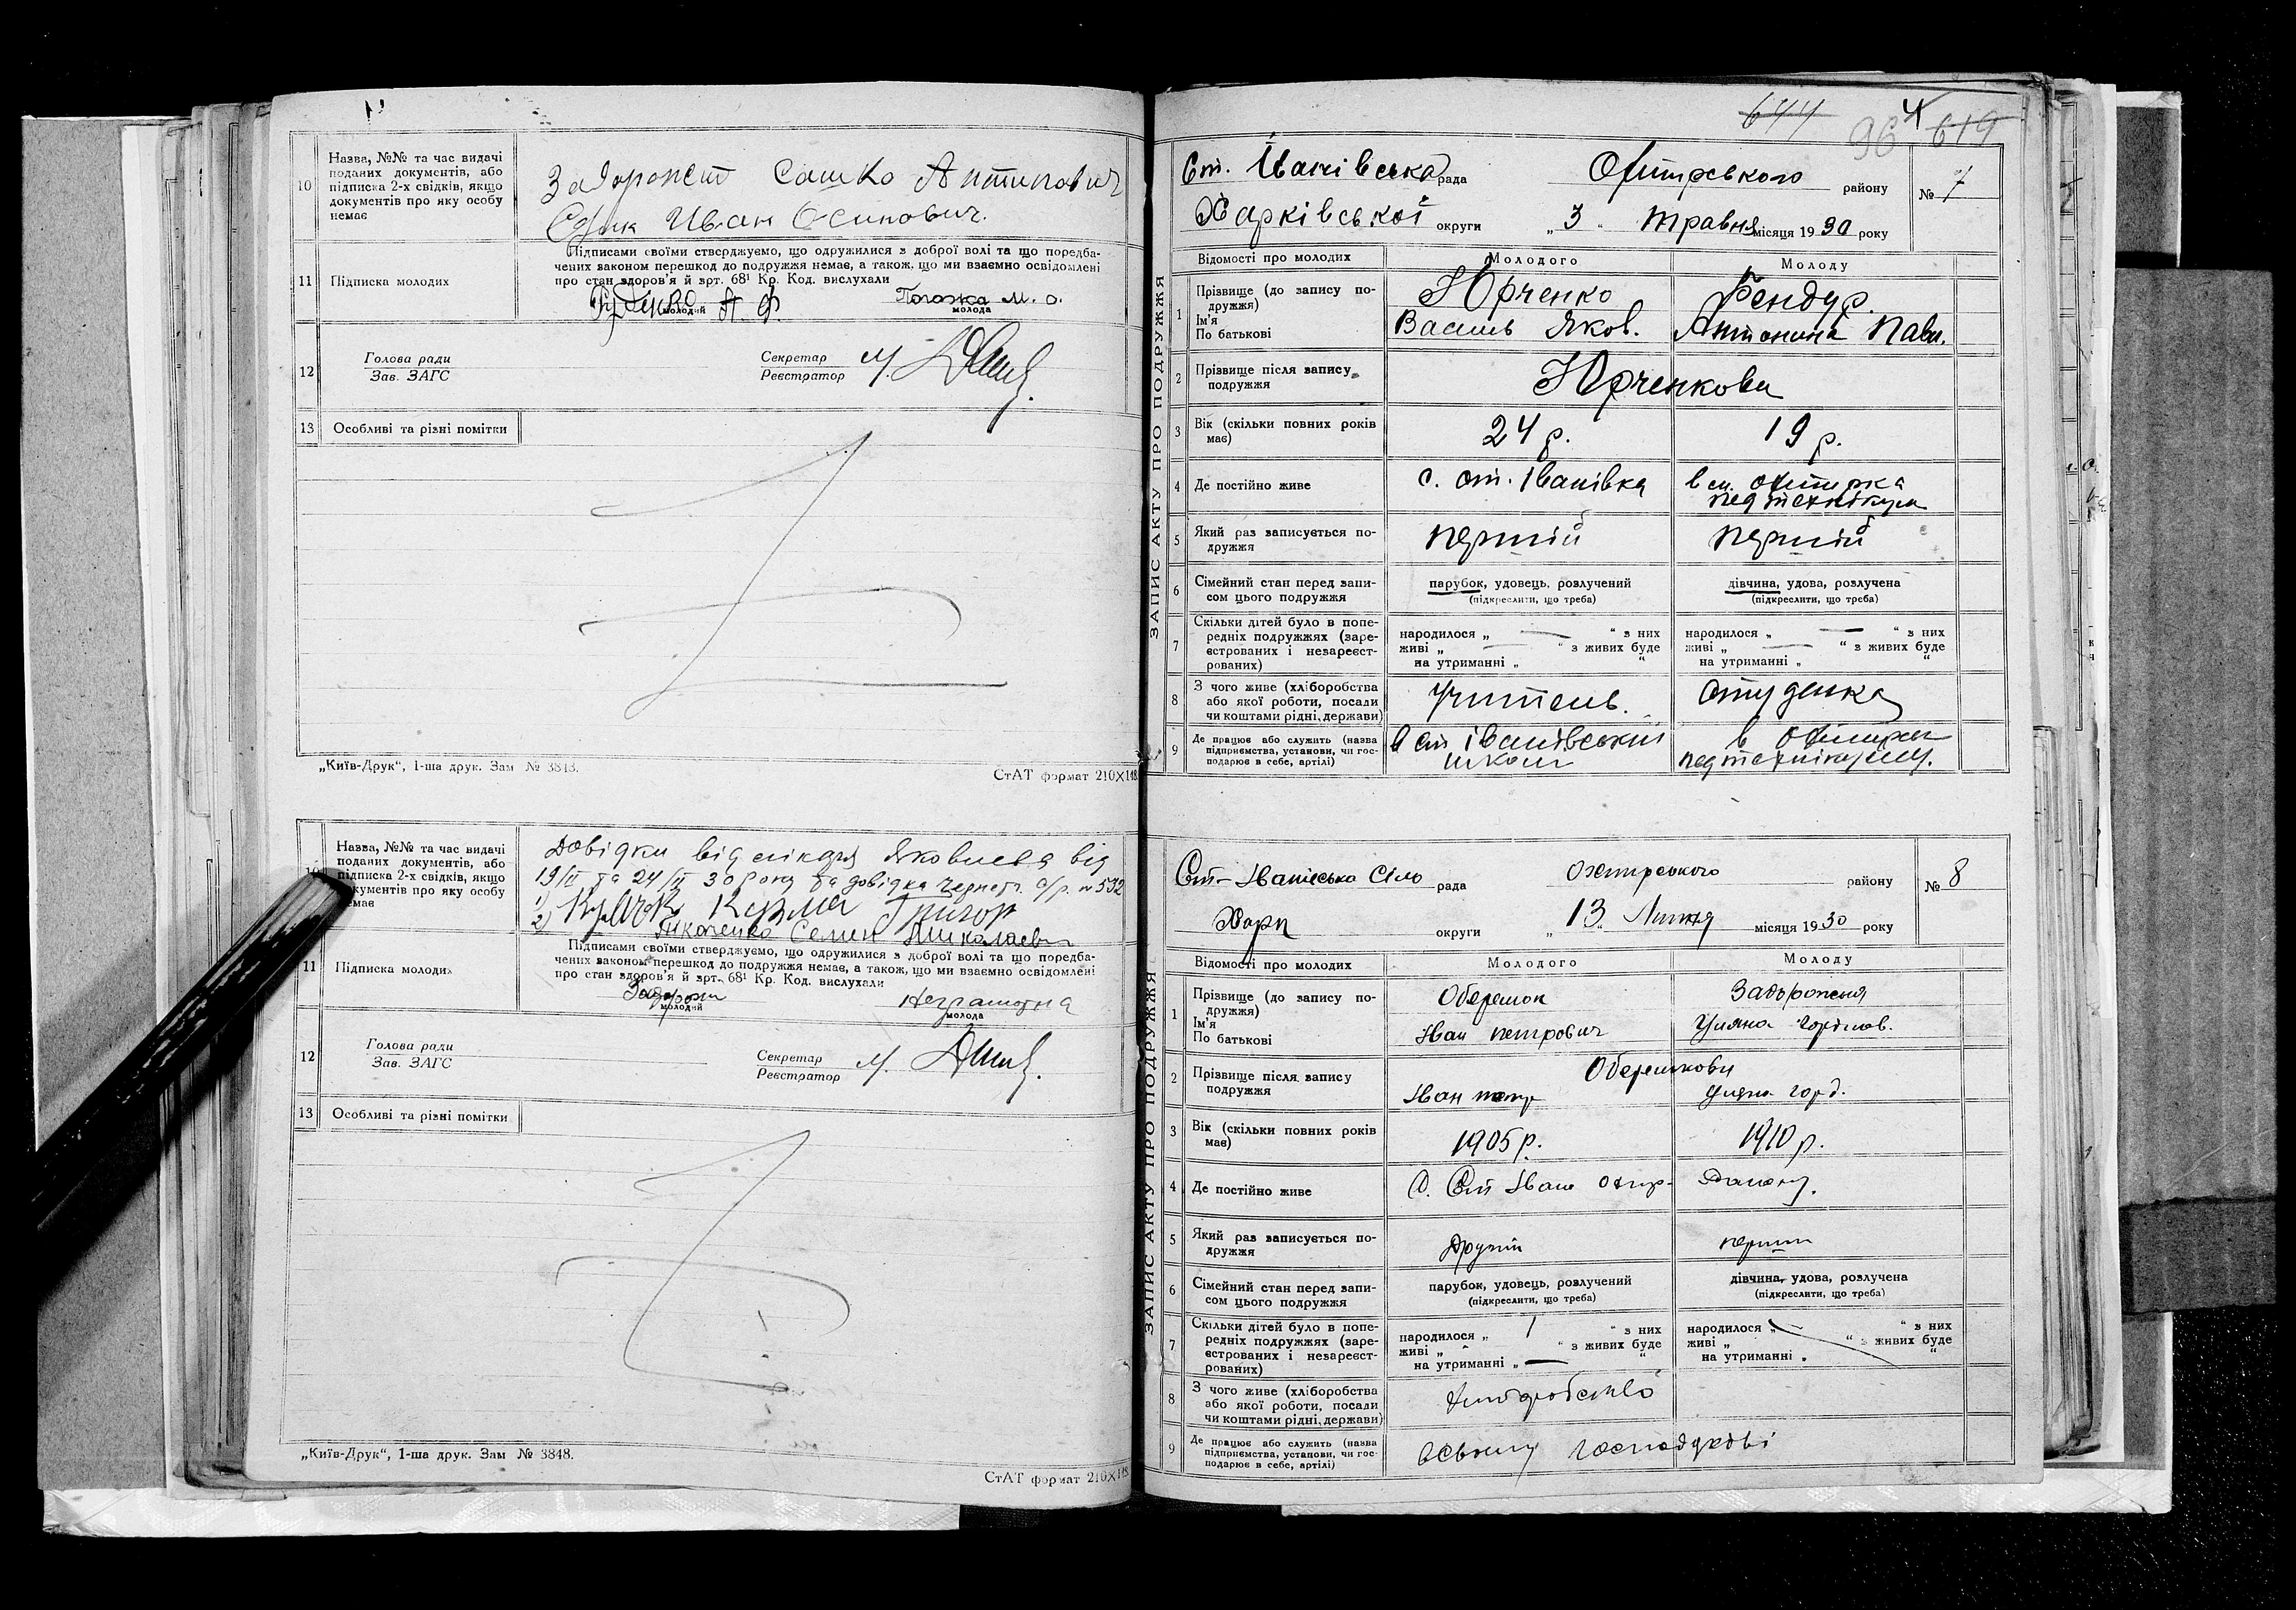 10
Назва, №№ та час видачі
поданих документів, або
підписка 2-х свідків, якщо
документів про яку особу
немає
Задорожет Сашко Антипович
Иван Осипович.
11
Підписка молодих
Підписами своїми стверджуємо, що одружилися з доброї волі та що передба-
чених законом перешкод до подружжя немає, а також, що ми взаємно освідомлені
про стан здоров'я й арт. 68¹ Кр. Код. вислухали
А. Ф.
молодий
М. О.
молода
12
Голова ради
Зав. ЗАГС
Секретар
Реєстратор
13
Особливі та різні помітки
„Київ-Друк“, 1-ша друк. Зам № 3848.
СтАТ формат 210×148
10
Назва, №№ та час видачі
поданих документів, або
підписка 2-х свідків, якщо
документів про яку особу
немає
Довідки від лікаря Яковлева від
19/II та 24/II 30 року та довідка с/р. № 532
1)
2)
Семен Миколаєв
11
Підписка молодих
Підписами своїми стверджуємо, що одружилися з доброї волі та що передба-
чених законом перешкод до подружжя немає, а також, що ми взаємно освідомлені
про стан здоров'я й арт. 68¹ Кр. Код. вислухали
Задорож
молодий
Неграмотна
молода
12
Голова ради
Зав. ЗАГС
Секретар
Реєстратор
13
Особливі та різні помітки
„Київ-Друк“, 1-ша друк. Зам № 3848.
СтАТ формат 210×148
644 96 4 619
ЗАПИС АКТУ ПРО ПОДРУЖЖЯ
Ст. Іванівська рада Охтирського району № 7
Харківської округи „3“ травня місяця 1930 року
Відомості про молодих Молодого Молоду
1
Прізвище (до запису по-
дружжя)
Ім'я
По батькові
Юрченко
Василь Яков.
Бендур.
Антонина Павл.
2
Прізвище після запису
подружжя
Юрченкови
3
Вік (скільки повних років
має)
24 р.
19 р.
4
Де постійно живе
с. ст. Іванівка
в м. Охтирка
педтехнікум
5
Який раз записується по-
дружжя
перший
перший
6
Сімейний стан перед запи-
сом цього подружжя
парубок, удовець, розлучений
(підкреслити, що треба)
дівчина, удова, розлучена
(підкреслити, що треба)
7
Скільки дітей було в попе-
редніх подружжях (заре-
єстрованих і незареєст-
рованих)
народилося „ — “ з них
живі „ — “ з живих буде
на утриманні „ “
народилося „ — “ з них
живі „ — “ з живих буде
на утриманні „ “
8
З чого живе (хліборобства
або якої роботи, посади
чи коштами рідні, держави)
Учитель.
студенка
9
Де працює або служить (назва
підприємства, установи, чи гос-
подарює в себе, артілі)
в ст іванівський
школі
в Охтирськ
педтехнікумі.
ЗАПИС АКТУ ПРО ПОДРУЖЖЯ
Ст-Іванівсько Сіль рада Охтирського району № 8
Харк округи „13“ Липня місяця 1930 року
Відомості про молодих Молодого Молоду
1
Прізвище (до запису по-
дружжя)
Ім'я
По батькові
Оберемок
Іван Петрович
Задорожня
Уляна
2
Прізвище після запису
подружжя
Оберемкови
Іван петр
Уляна Горд.
3
Вік (скільки повних років
має)
1905 р.
1910 р.
4
Де постійно живе
С. Ст Іван Охтир-
району.
5
Який раз записується по-
дружжя
Другий
перший
6
Сімейний стан перед запи-
сом цього подружжя
парубок, удовець, розлучений
(підкреслити, що треба)
дівчина, удова, розлучена
(підкреслити, що треба)
7
Скільки дітей було в попе-
редніх подружжях (заре-
єстрованих і незареєст-
рованих)
народилося „ 1 “ з них
живі „ - “ з живих буде
на утриманні „ — “
народилося „ “ з них
живі „ “ з живих буде
на утриманні „ “
8
З чого живе (хліборобства
або якої роботи, посади
чи коштами рідні, держави)
хліборобство
9
Де працює або служить (назва
підприємства, установи, чи гос-
подарює в себе, артілі)
всвому господарстві